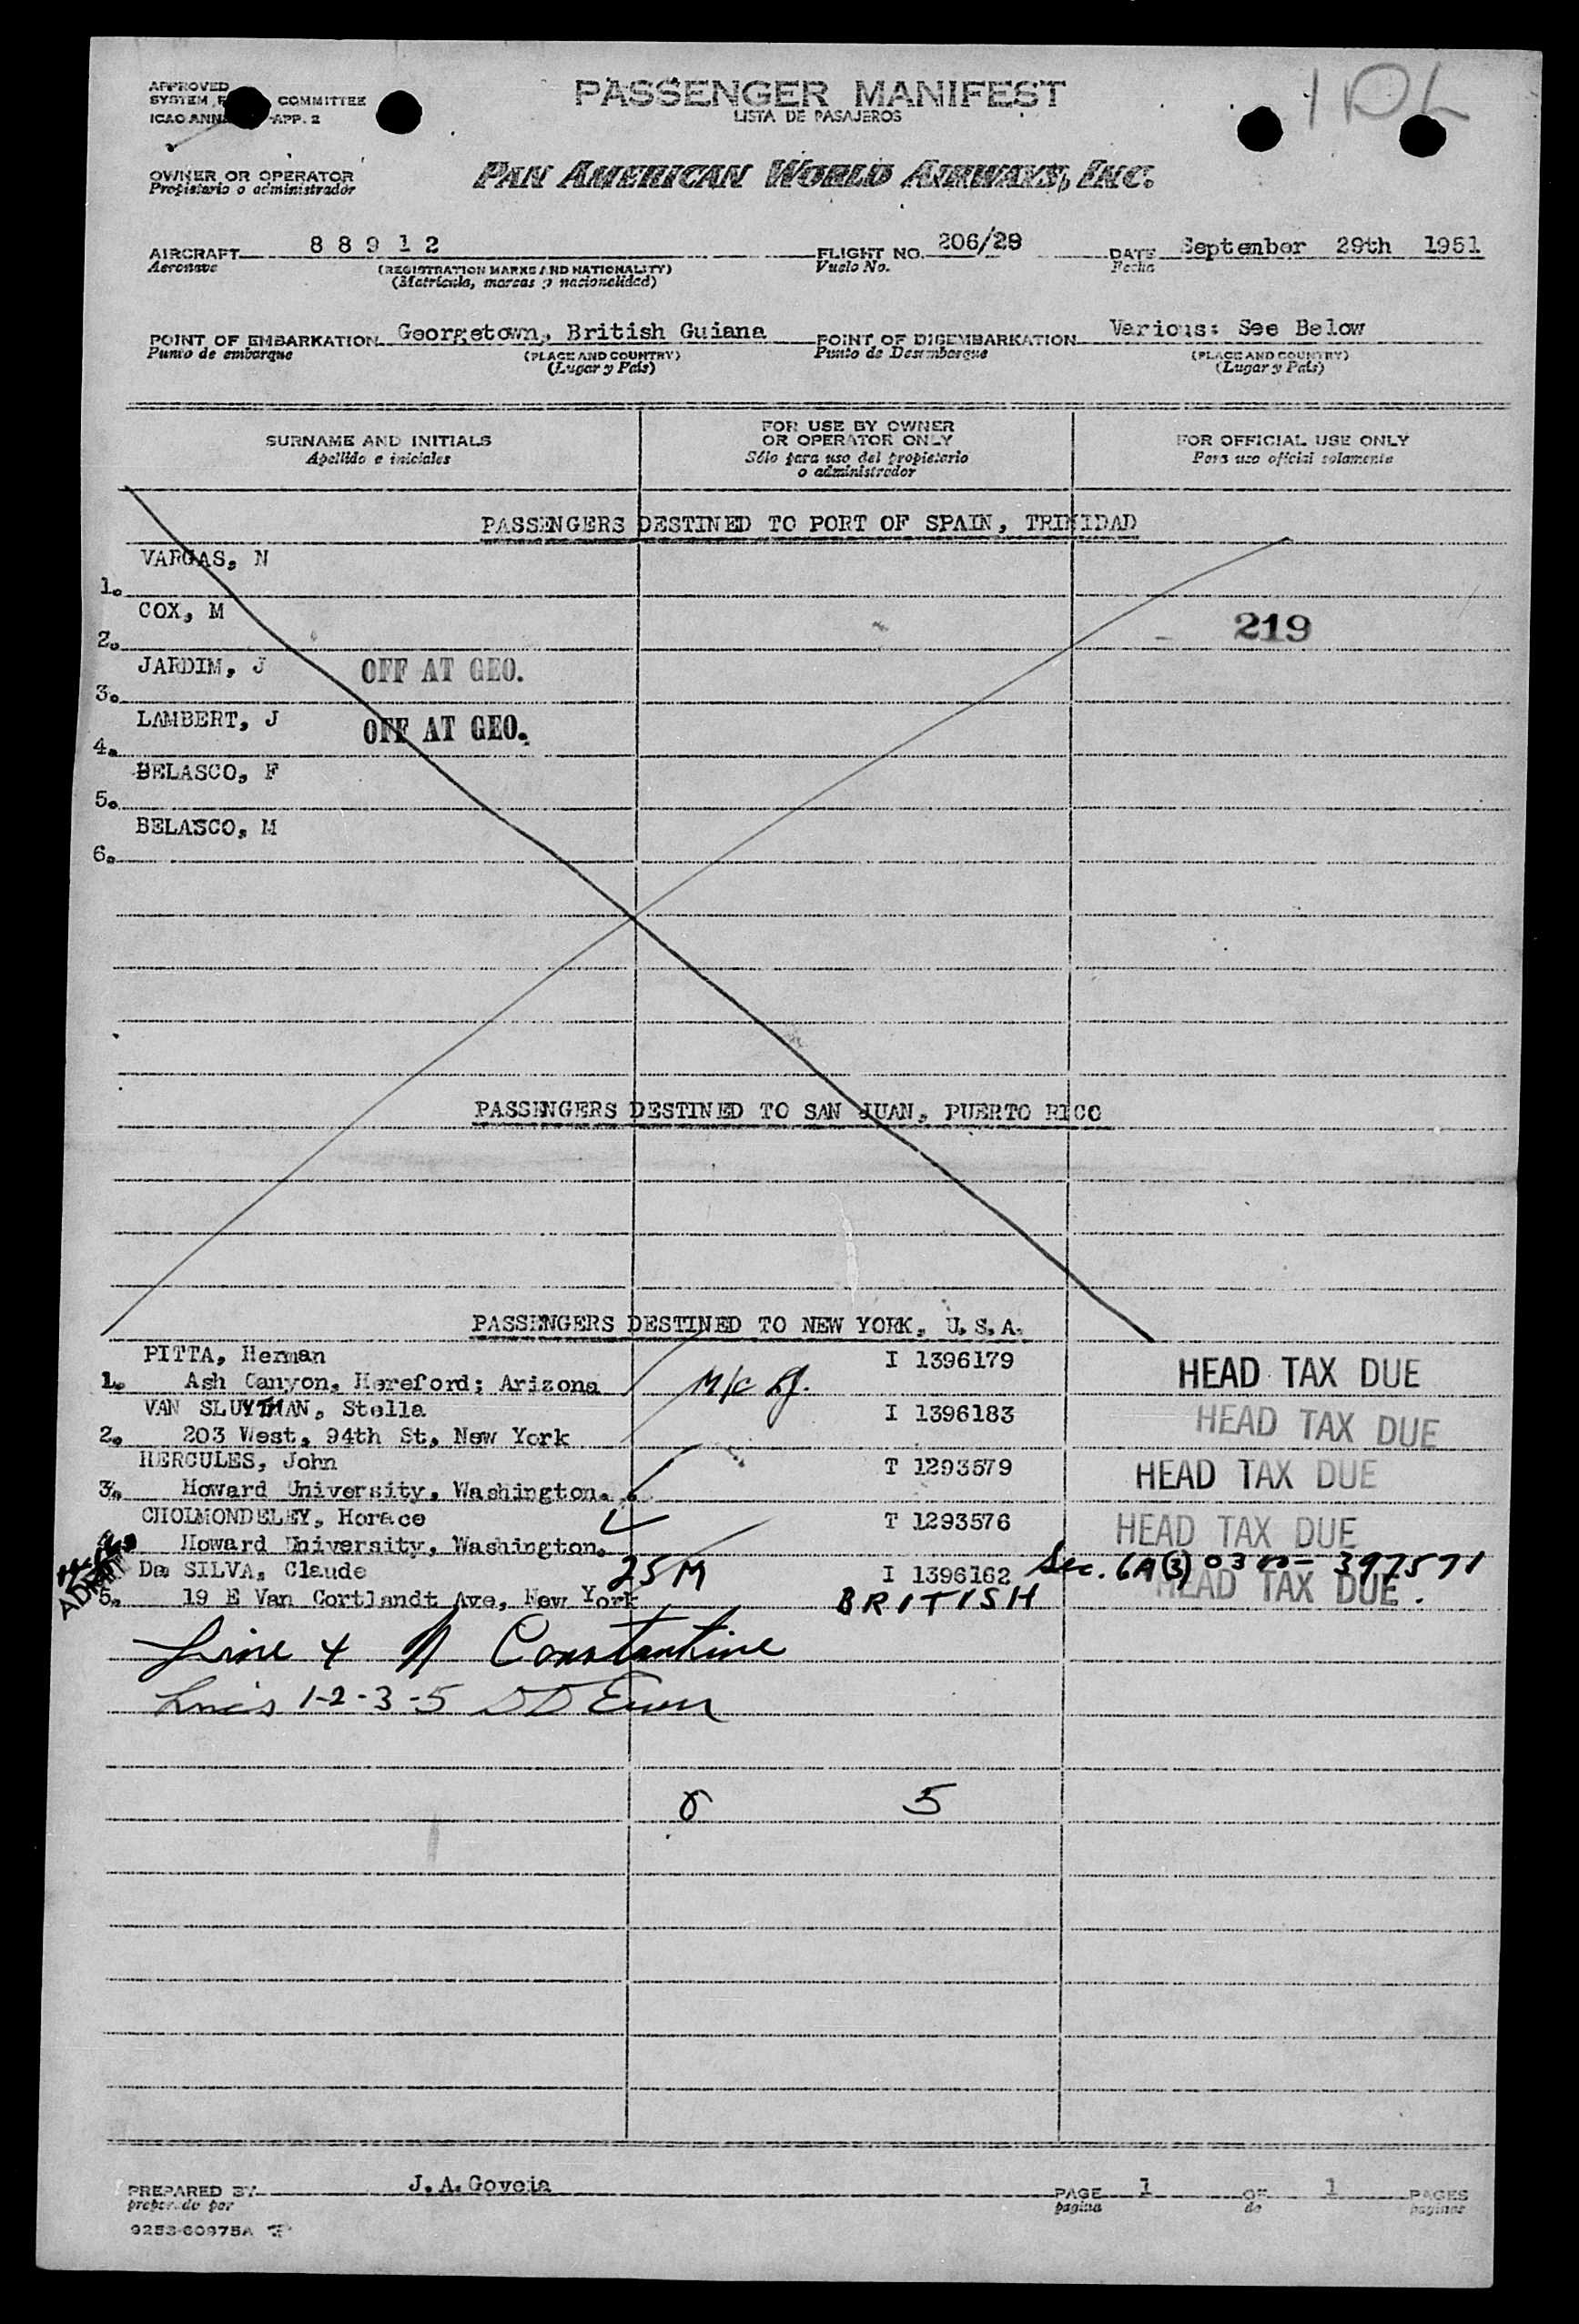 APPROVED
SYSTEM COMMITTEE
ICAO APP. 2
PASSENGER MANIFEST
LISTA DE PASAJEROS
OWNER OR OPERATOR
Propietario o administrador
PAN AMERICAN WORLD AIRWAYS, INC.
AIRCRAFT 88912 FLIGHT NO. 206/29 DATE September 29th 1951
Aeronave (REGISTRATION MARKS AND NATIONALITY) Vuelo No. Fecha
(Matricula, marcas y nacionalidad)
POINT OF EMBARKATION Georgetown, British Guiana POINT OF DISEMBARKATION Various: See Below
Punto de embarque (PLACE AND COUNTRY) Punto de Desembarque (PLACE AND COUNTRY)
(Lugar y País) (Lugar y País)
SURNAME AND INITIALS FOR USE BY OWNER OR OPERATOR ONLY FOR OFFICIAL USE ONLY
Apellido e iniciales Sólo para uso del propietario o administrador Para uso oficial solamente
PASSENGERS DESTINED TO PORT OF SPAIN, TRINIDAD
VARGAS, N
1.
COX, M 219
2.
JARDIM, J OFF AT GEO.
3.
LAMBERT, J OFF AT GEO.
4.
BELASCO, F
5.
BELASCO, M
6.
PASSENGERS DESTINED TO SAN JUAN, PUERTO RICO
PASSENGERS DESTINED TO NEW YORK, U.S.A.
PITTA, Herman I 1396179 HEAD TAX DUE
1. Ash Canyon, Hereford; Arizona M/C
VAN SLUYTMAN, Stella I 1396183 HEAD TAX DUE
2. 203 West, 94th St, New York
HERCULES, John T 1293579 HEAD TAX DUE
3. Howard University, Washington.
CHOLMONDELEY, Horace T 1293576 HEAD TAX DUE
Howard University, Washington.
Da SILVA, Claude 25M I 1396162 Sec. 6A(3) 0300-397571
5. 19 E Van Cortlandt Ave, New York BRITISH HEAD TAX DUE.
Line 4 N Constantine
Line's 1-2-3-5
5
PREPARED BY J.A.Goveia PAGE 1 OF 1 PAGES
preparado por pagina de paginas
9253-60975A